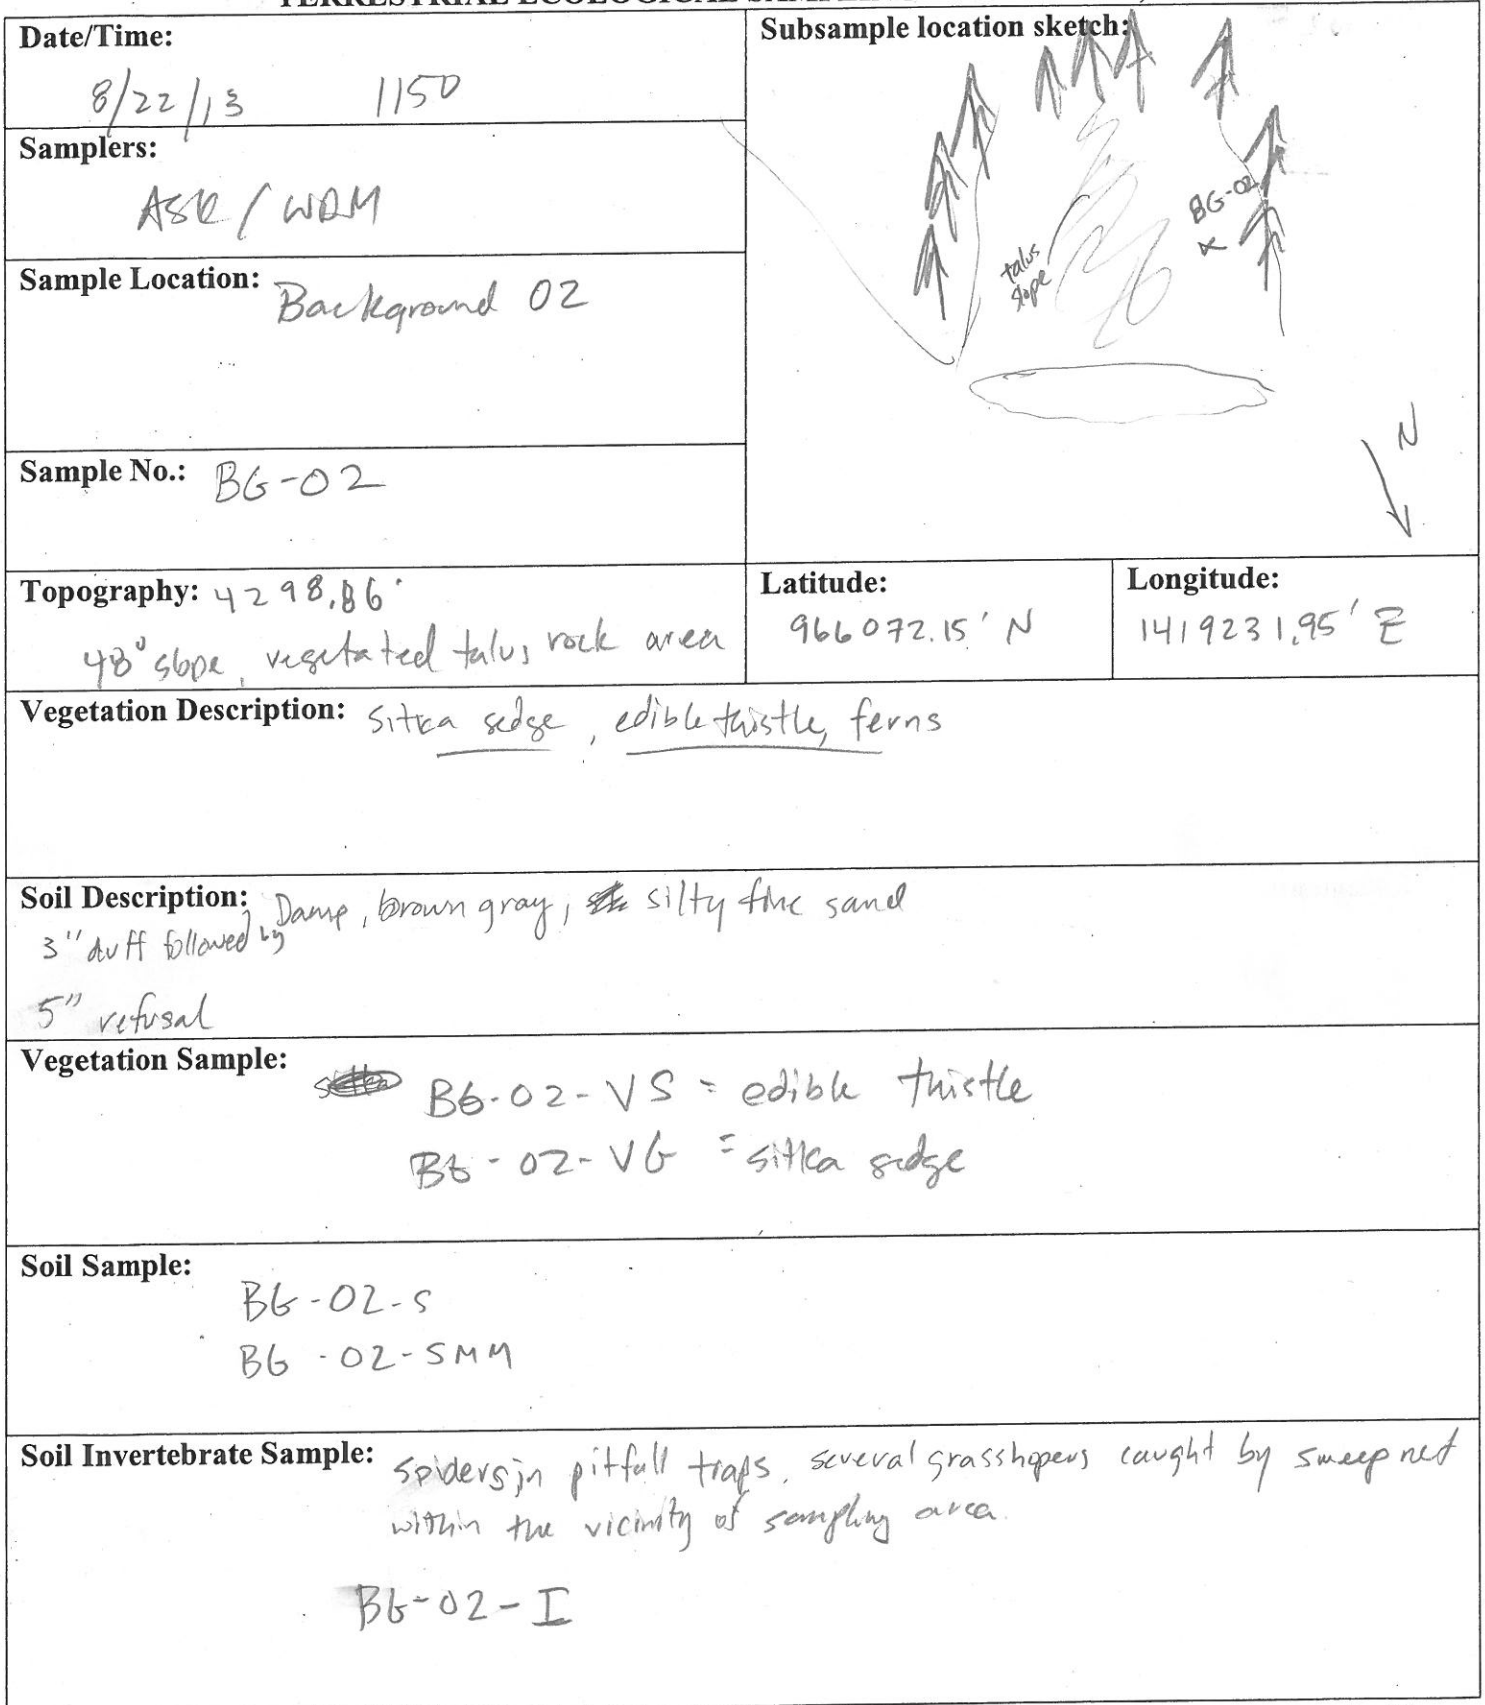 TERRESTRIAL ECOLOGICAL
Date/Time:
8/22/13 1150
Samplers:
/
Sample Location: Background 02
Sample No.: BG-02
Subsample location sketch:
BG-02
x
talus
slope
N
Topography: 4298.86'
48° slope, vegetated talus rock area
Latitude:
966072.15' N
Longitude:
1419231.95' E
Vegetation Description: Sitka sedge, edible thistle, ferns
Soil Description: Damp, brown gray, silty fine sand
3" duff followed by
5" refusal
Vegetation Sample:
BG-02-VS = edible thistle
BG-02-VG = sitka sedge
Soil Sample:
BG-02-S
BG-02-SMM
Soil Invertebrate Sample: spiders in pitfall traps, several grasshopers caught by sweep net
within the vicinity of sampling area.
BG-02-I